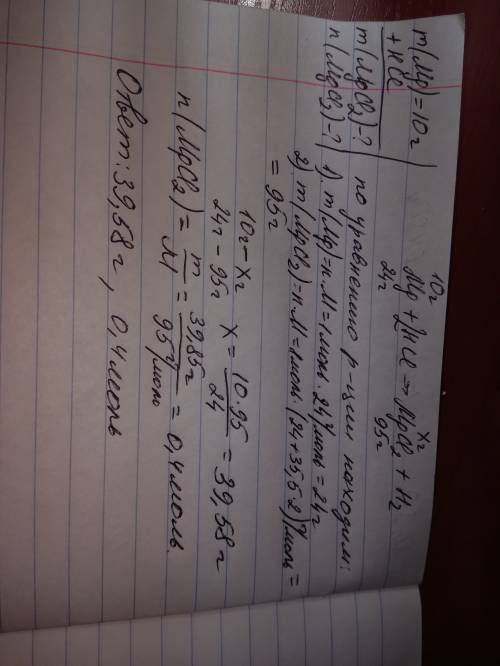 m(Mg)=10г
+HCl
m(MgCl₂)-?
n(MgCl₂)-?
10г xг
Mg + 2HCl → MgCl₂ + H₂
24г 95г
по уравнению р-ции находим:
1) m(Mg)=n·M=1моль·24г/моль=24г
2) m(MgCl₂)=n·M=1моль·(24+35,5·2)г/моль=
= 95г
10г – xг
24г – 95г x = 10·95/24 = 39,58г
n(MgCl₂) = m/M = 39,85г/95г/моль = 0,4моль.
Ответ: 39,58г, 0,4моль